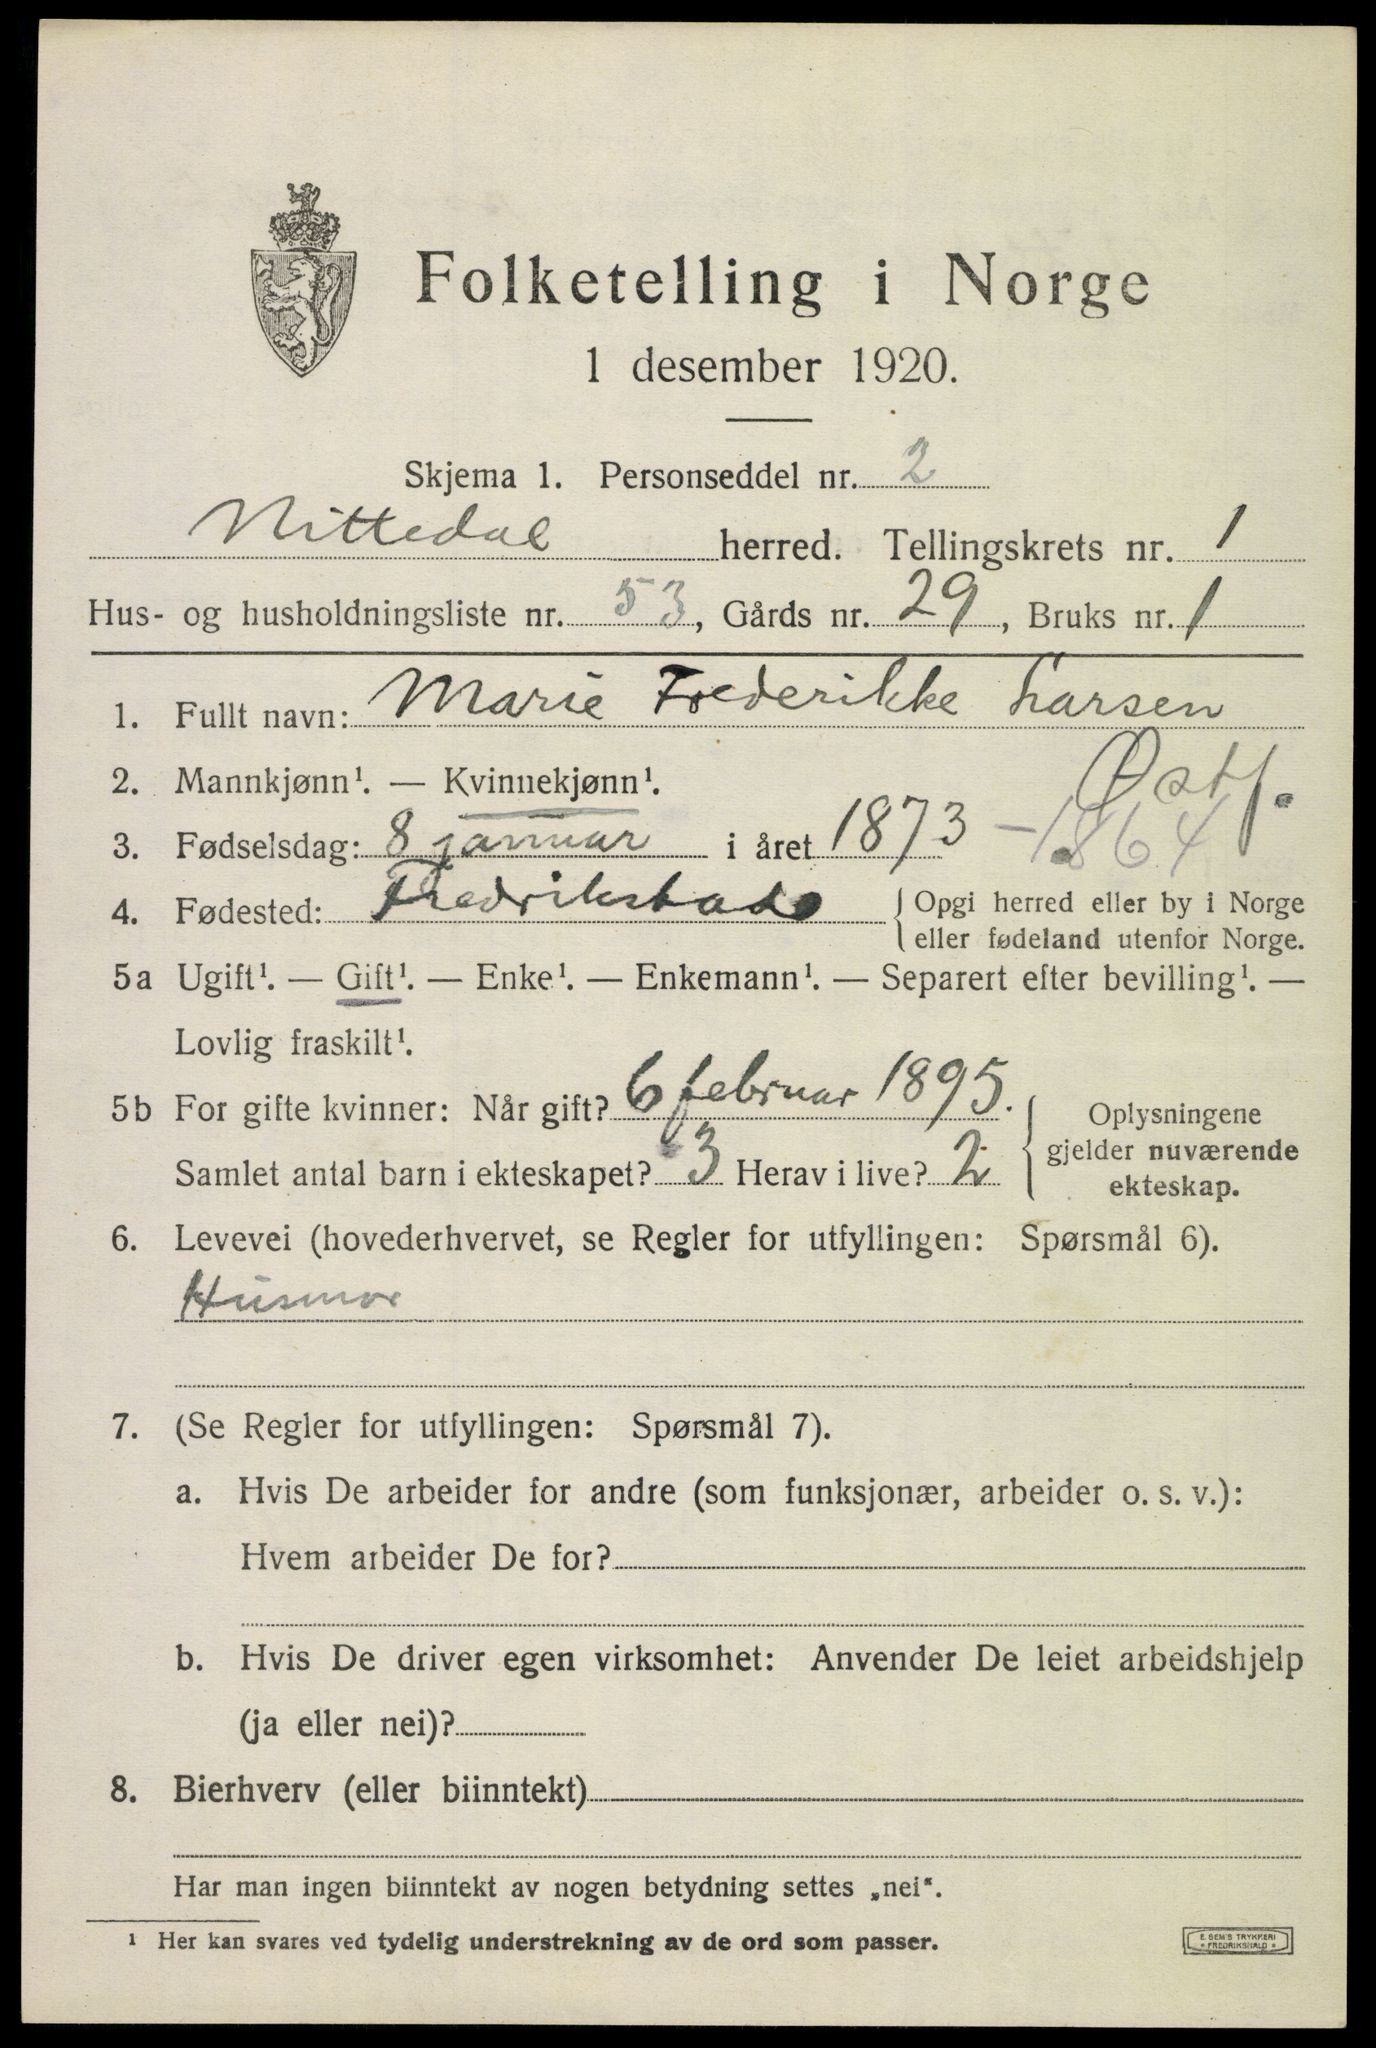 Folketelling i Norge
1 desember 1920.
Skjema 1. Personseddel nr. 2
Nittedal herred. Tellingskrets nr. 1
Hus- og husholdningsliste nr. 53, Gårds nr. 29, Bruks nr. 1
1. Fullt navn: Marie Frederikke Larsen
2. Mannkjønn¹. — Kvinnekjønn¹.
Østf.
3. Fødselsdag: 8 januar i året 1873 - 1864
4. Fødested: Fredrikstad { Opgi herred eller by i Norge
eller fødeland utenfor Norge.
5a Ugift¹. — Gift¹. — Enke¹. — Enkemann¹. — Separert efter bevilling¹. —
Lovlig fraskilt¹.
5b For gifte kvinner: Når gift? 6 februar 1895. { Oplysningene
gjelder nuværende
ekteskap.
Samlet antal barn i ekteskapet? 3 Herav i live? 2
6. Levevei (hovederhvervet, se Regler for utfyllingen: Spørsmål 6).
Husmor
7. (Se Regler for utfyllingen: Spørsmål 7).
a. Hvis De arbeider for andre (som funksjonær, arbeider o. s. v.):
Hvem arbeider De for?
b. Hvis De driver egen virksomhet: Anvender De leiet arbeidshjelp
(ja eller nei)?
8. Bierhverv (eller biinntekt)
Har man ingen biinntekt av nogen betydning settes „nei“.
¹ Her kan svares ved tydelig understrekning av de ord som passer.
E. SEM'S TRYKKERI
* FREDRIKSHALD *